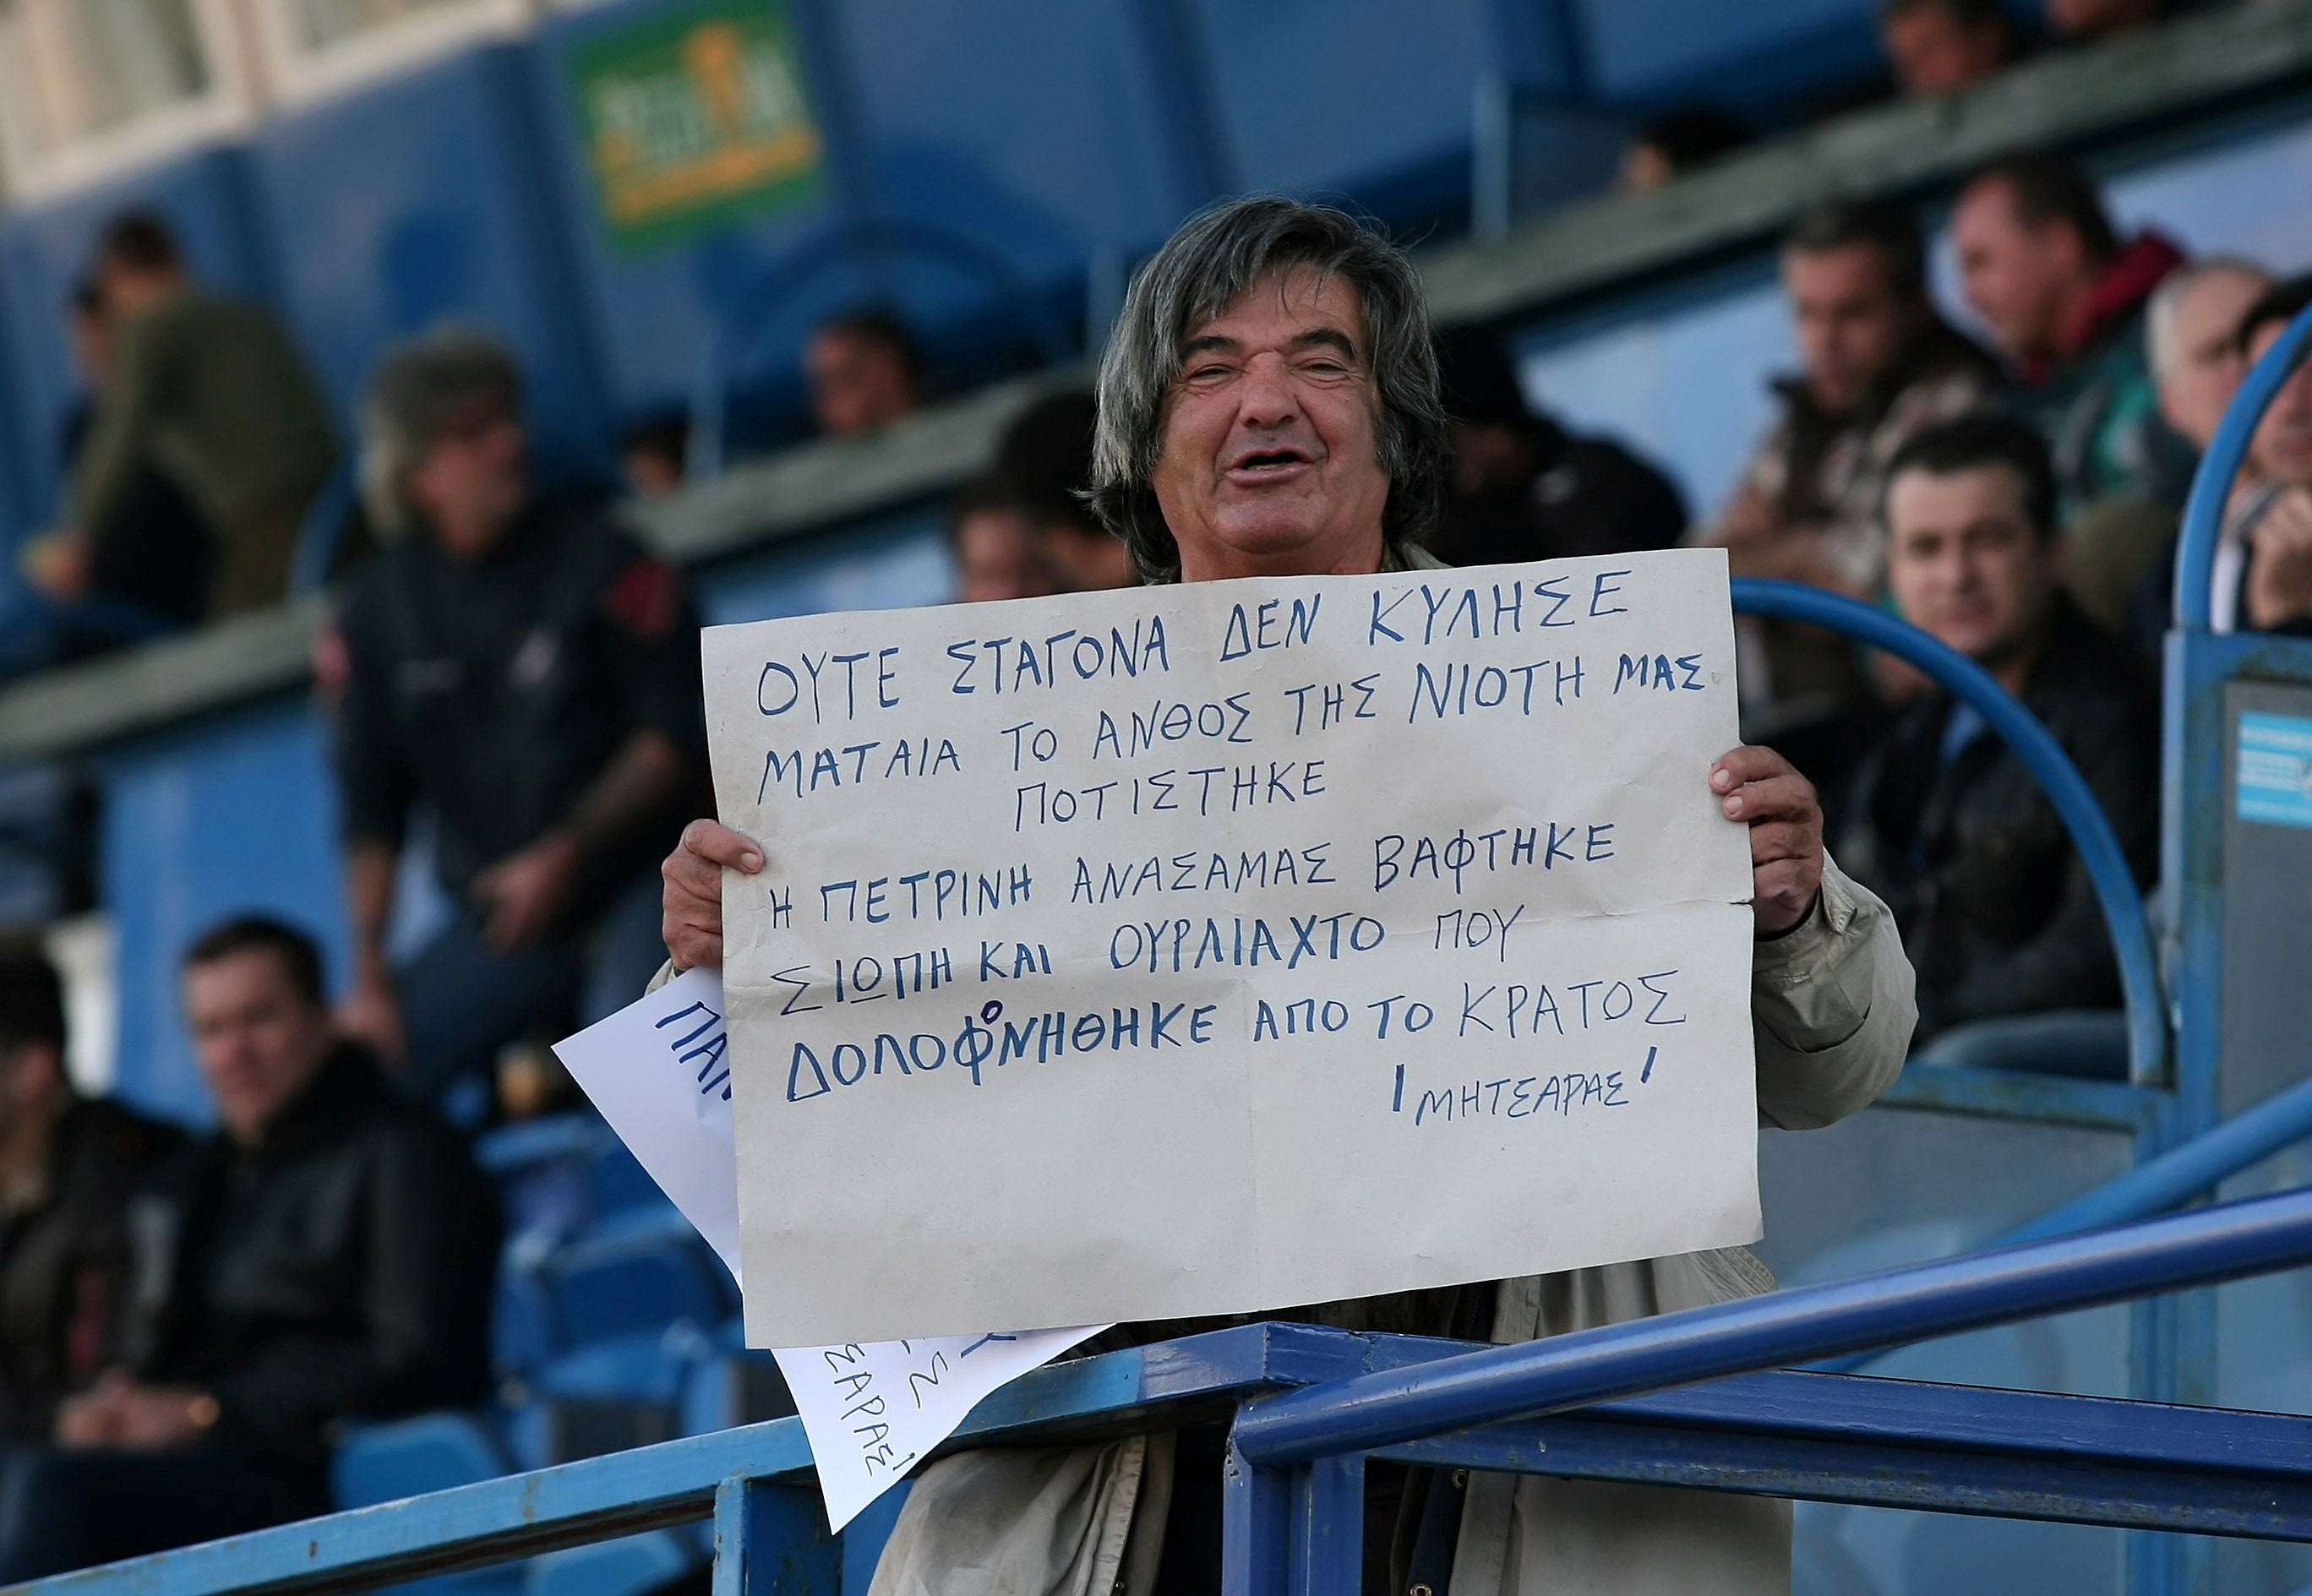 ΟΥΤΕ ΣΤΑΓΟΝΑ ΔΕΝ ΚΥΛΗΣΕ
ΜΑΤΑΙΑ ΤΟ ΑΝΘΟΣ ΤΗΣ ΝΙΟΤΗ ΜΑΣ
ΠΟΤΙΣΤΗΚΕ
Η ΠΕΤΡΙΝΗ ΑΝΑΣΑΜΑΣ ΒΑΦΤΗΚΕ
ΣΙΩΠΗ ΚΑΙ ΟΥΡΛΙΑΧΤΟ ΠΟΥ
ΔΟΛΟΦΟΝΗΘΗΚΕ ΑΠΟ ΤΟ ΚΡΑΤΟΣ
! ΜΗΤΣΑΡΑΣ !
ΣΑΡΑΣ!